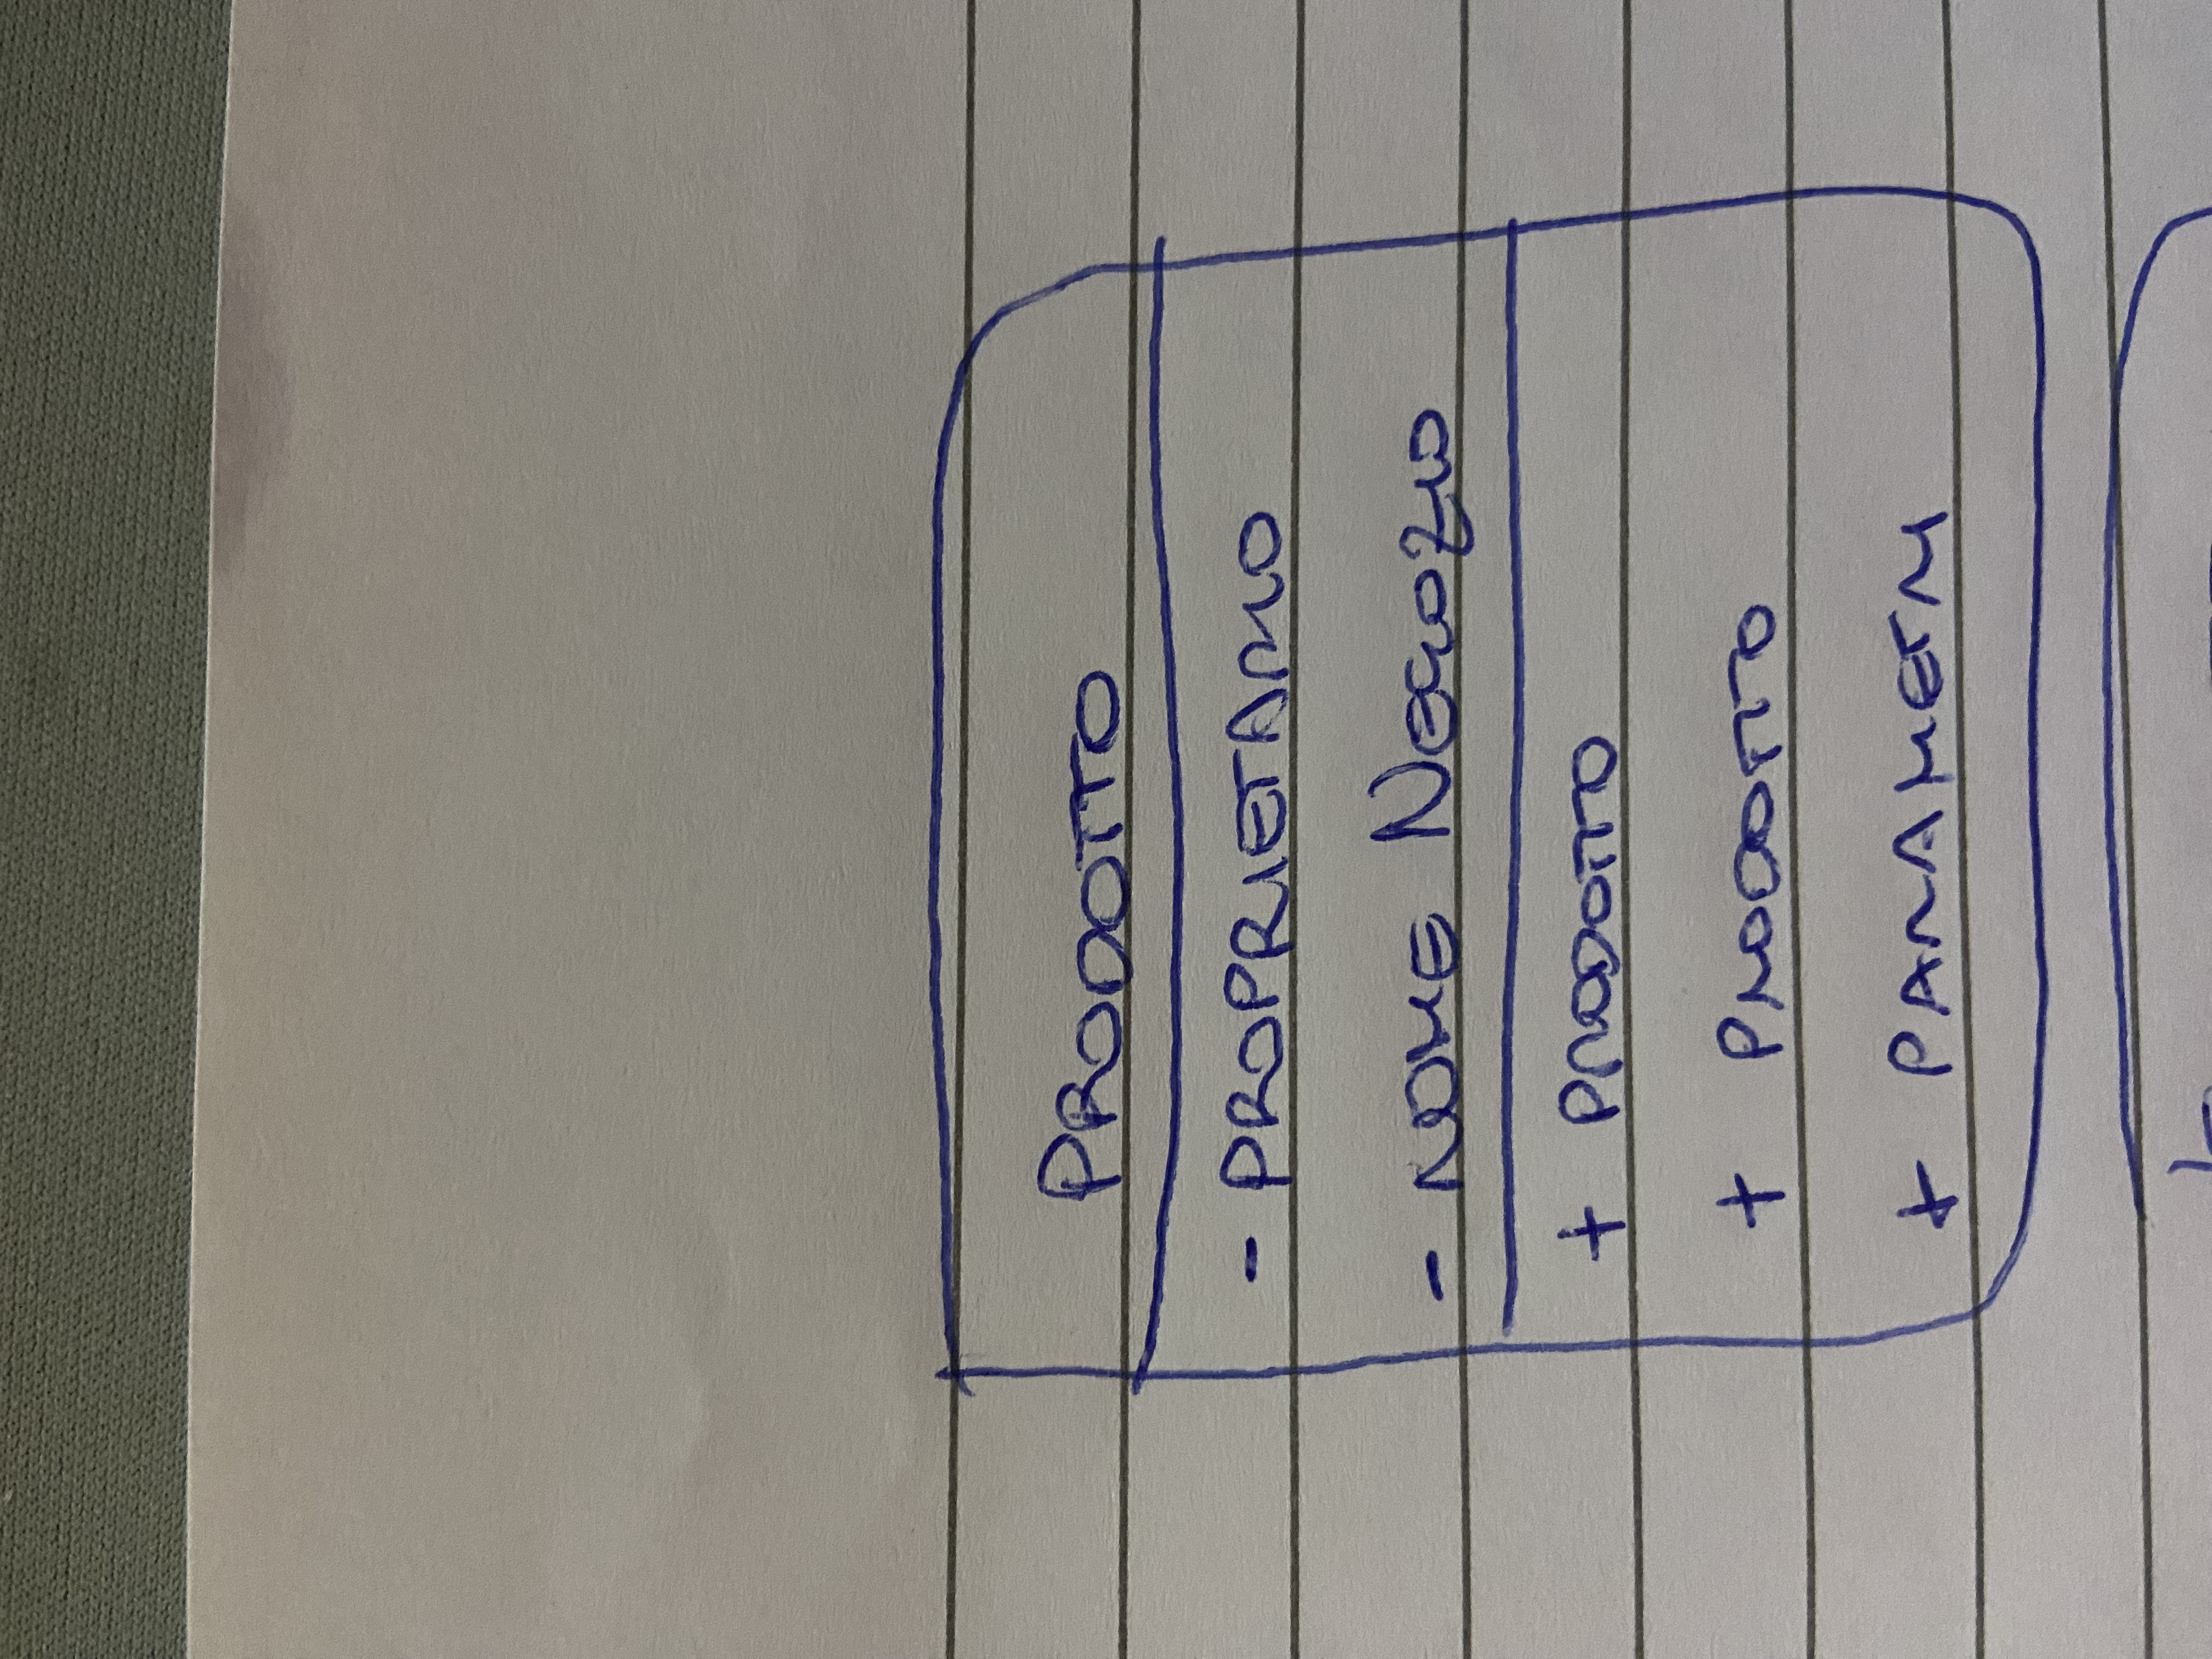 PRODOTTO
- PROPRIETARIO
- NOME NEGOZIO
+ PRODOTTO
+ PRODOTTO
+ PARAMETRI